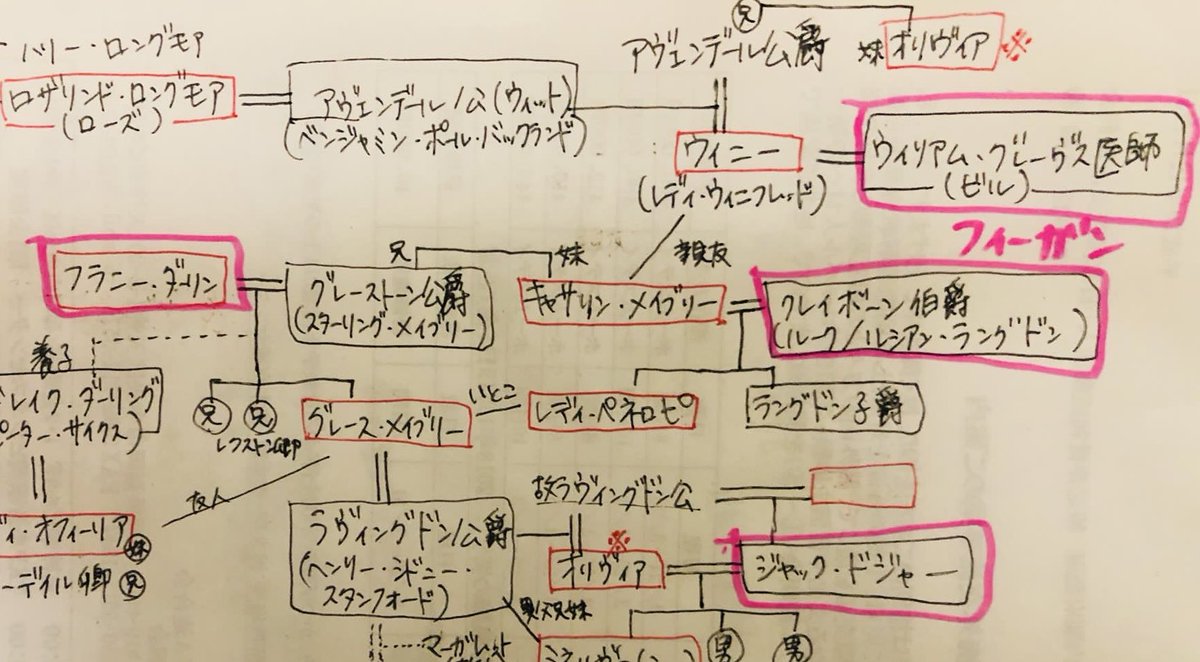 ハリー・ロングモア
兄
アヴェンデール公爵
妹 オリヴィア ※
ロザリンド・ロングモア
(ローズ)
アヴェンデール公(ウィット)
(ベンジャミン・ポール・バックランド)
ウィニー
(レディ・ウィニフレッド)
ウィリアム・グレーヴス医師
(ビル)
フィーガン
親友
兄
妹
フラニー・ダーリン
グレーストーン公爵
(スターリング・メイブリー)
キャサリン・メイブリー
クレイボーン伯爵
(ルーク/ルシアン・ラングドン)
養子
レイク・ダーリング
ピーター・サイクス)
兄 兄
レクストン卿
グレース・メイブリー
いとこ
レディ・ペネロピ
ラングドン子爵
友人
ディ・オフィーリア 妹
ーデイル卿 兄
ラヴィングドン公爵
(ヘンリー・シドニー・
スタンフォード)
故ラヴィングドン公
※
オリヴィア
ジャック・ドジャー
異父兄妹
マーガレット
男 男